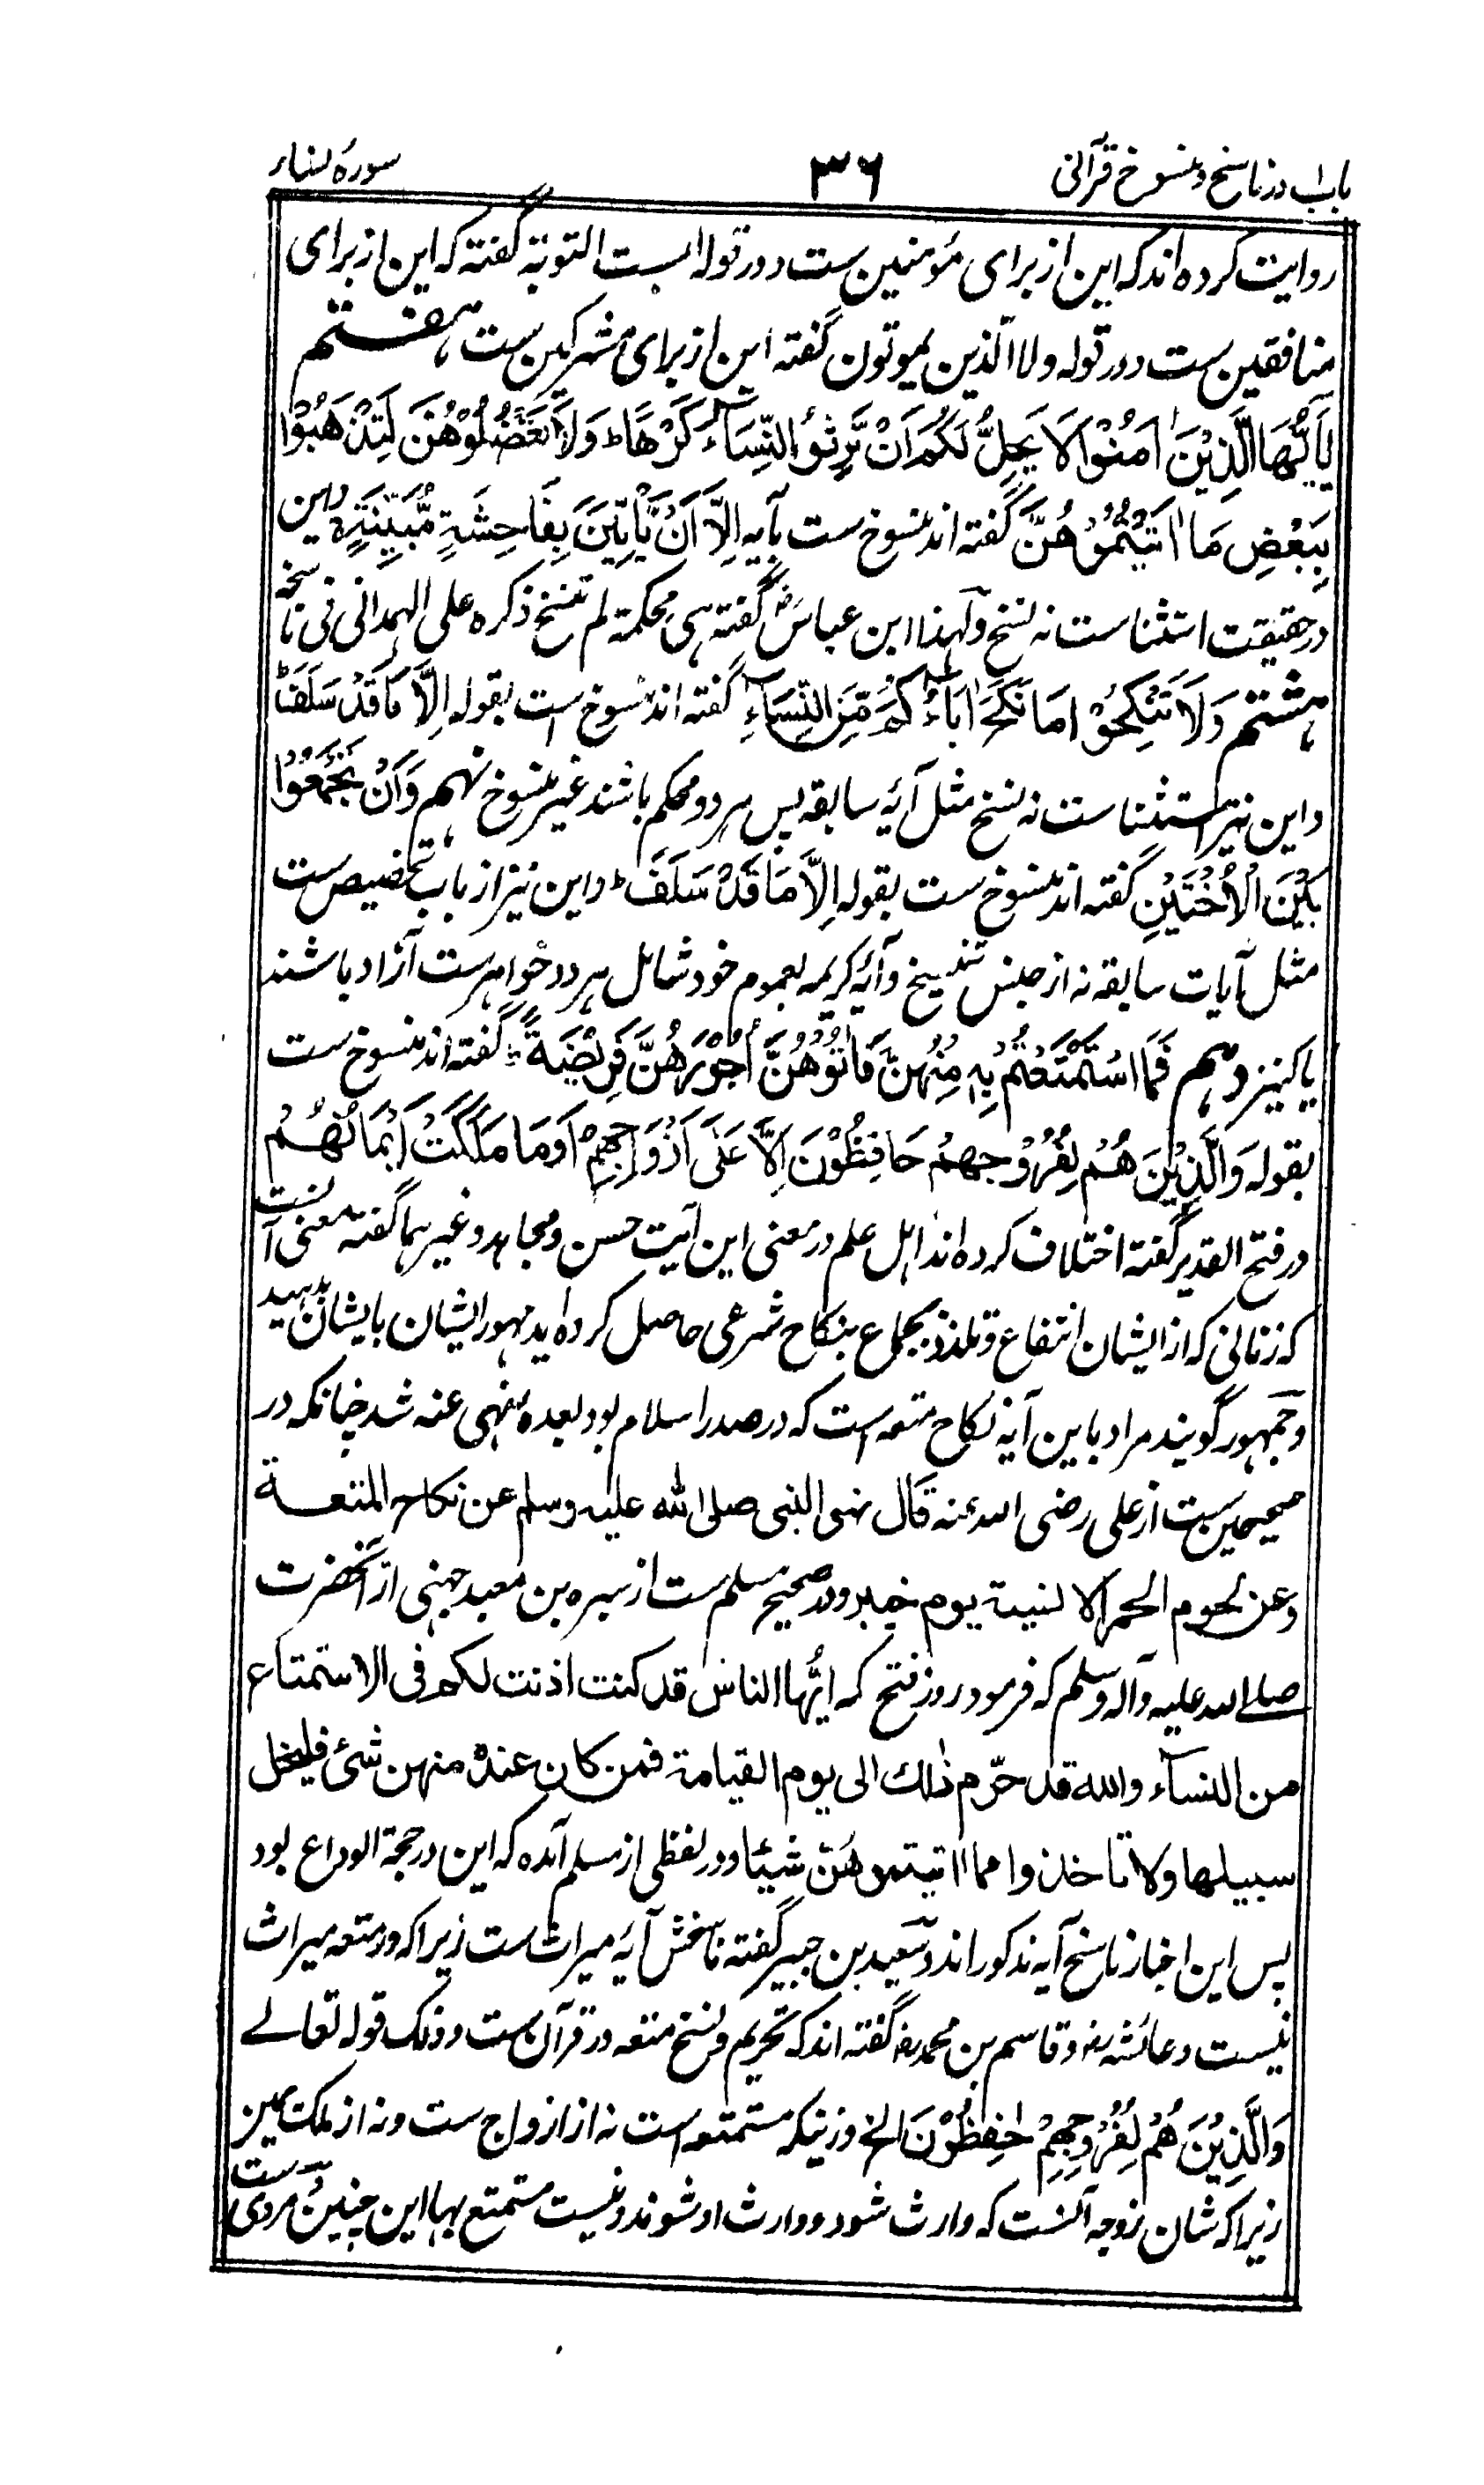 باب ۱ در ناسخ و منسوخ قرآنی ۳۶ سورهٔ نساء
روایت کرده اند که این از برای مؤمنین ست و در قوله لیست التوبة گفته که این از برای
منافقین ست و در قوله ولا الذین یموتون گفته این از برای مشرکین ست هفتم
یٰۤاَیُّهَا الَّذِیْنَ اٰمَنُوْا لَا یَحِلُّ لَكُمْ اَنْ تَرِثُوا النِّسَآءَ كَرْهًا ط وَلَا تَعْضُلُوْهُنَّ لِتَذْهَبُوْا
بِبَعْضِ مَاۤ اٰتَیْتُمُوْهُنَّ گفته اند منسوخ ست بآیه اِلَّاۤ اَنْ یَّاْتِیْنَ بِفَاحِشَةٍ مُّبَیِّنَةٍ و این
در حقیقت استثناست نه نسخ و لهذا ابن عباس رض گفته هی محکمة لم تنسخ ذکره علی الهمدانی فی ناسخه
هشتم وَلَا تَنْكِحُوْا مَا نَكَحَ اٰبَآؤُكُمْ مِّنَ النِّسَآءِ گفته اند منسوخ است بقوله اِلَّا مَا قَدْ سَلَفَ ط
و این نیز استثناست نه نسخ مثل آیهٔ سابقه پس هر دو محکم باشند غیر منسوخ نهم وَاَنْ تَجْمَعُوْا
بَیْنَ الْاُخْتَیْنِ گفته اند منسوخ ست بقوله اِلَّا مَا قَدْ سَلَفَ ط و این نیز از باب تخصیص ست
مثل آیات سابقه نه از جنس تنسیخ و آیهٔ کریمه بعموم خود شامل هر دو خواهرست آزاد باشند
یا کنیز دهم فَمَا اسْتَمْتَعْتُمْ بِهٖ مِنْهُنَّ فَاٰتُوْهُنَّ اُجُوْرَهُنَّ فَرِیْضَةً گفته اند منسوخ ست
بقوله وَالَّذِیْنَ هُمْ لِفُرُوْجِهِمْ حَافِظُوْنَ اِلَّا عَلٰۤی اَزْوَاجِهِمْ اَوْ مَا مَلَكَتْ اَیْمَانُهُمْ
در فتح القدیر گفته اختلاف کرده اند اهل علم در معنی این آیت حسن و مجاهد و غیرهما گفته معنی آنست
که زنانی که از ایشان انتفاع و تلذذ بجماع بنکاح شرعی حاصل کرده اید مهور ایشان بایشان بدهید
و جمهور گویند مراد باین آیة نکاح متعه است که در صدر اسلام بود بعده منهی عنه شد چنانکه در
صحیحین ست از علی رضی الله عنه قال نهی النبی صلی الله علیه وسلم عن نکاح المتعة
وعن لحوم الحمر الانسیة یوم خیبر و در صحیح مسلم ست از سبره بن معبد جهنی از آنحضرت
صلے الله علیه وآله وسلم که فرمود روز فتح مکه ایّها الناس قد کنت اذنت لکم فی الاستمتاع
من النسآء والله قد حرّم ذلك الی یوم القیامة فمن کان عنده منهن شیٔ فلیخل
سبیلها ولا تاخذوا مما اتیتموهنّ شیئا و در لفظی از مسلم آمده که این در حجة الوداع بود
پس این اخبار ناسخ آیه مذکور اند و سعید بن جبیر گفته ناسخش آیهٔ میراث ست زیرا که در متعه میراث
نیست و عائشه رض و قاسم بن محمد رض گفته اند که تحریم و نسخ متعه در قرآن ست و ذلک قوله تعالے
وَالَّذِیْنَ هُمْ لِفُرُوْجِهِمْ حٰفِظُوْنَ الخ و زنیکه مستمتعه است نه از ازواج ست و نه از ملک یمین
زیرا که شان زوجه آنست که وارث شود و وارث او شوند و نیست مستمتع بها این چنین و مروی ست